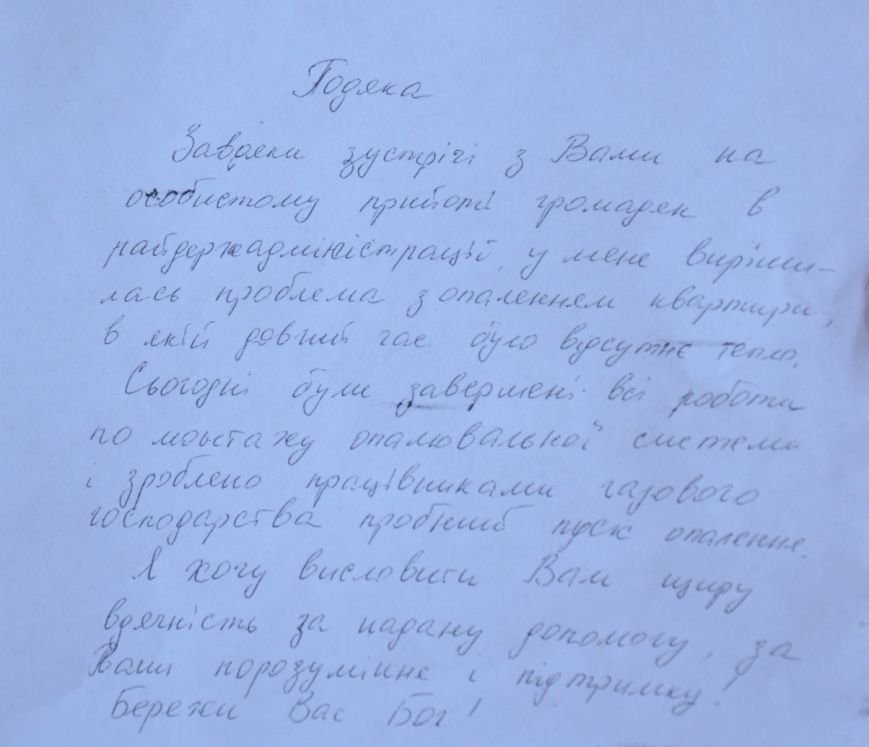 Подяка
Завдяки зустрічі з Вами на
особистому прийомі громадян в
райдержадміністрації, у мене виріши-
лась проблема з опаленням квартири,
в якій довгий час було відсутнє тепло.
Сьогодні були завершені всі роботи
по монтажу опалювальної системи
і зроблено працівниками газового
господарства пробний пуск опалення.
Я хочу висловити Вам щиру
вдячність за надану допомогу, за
Ваше порозуміння і підтримку!
Бережи Вас Бог!